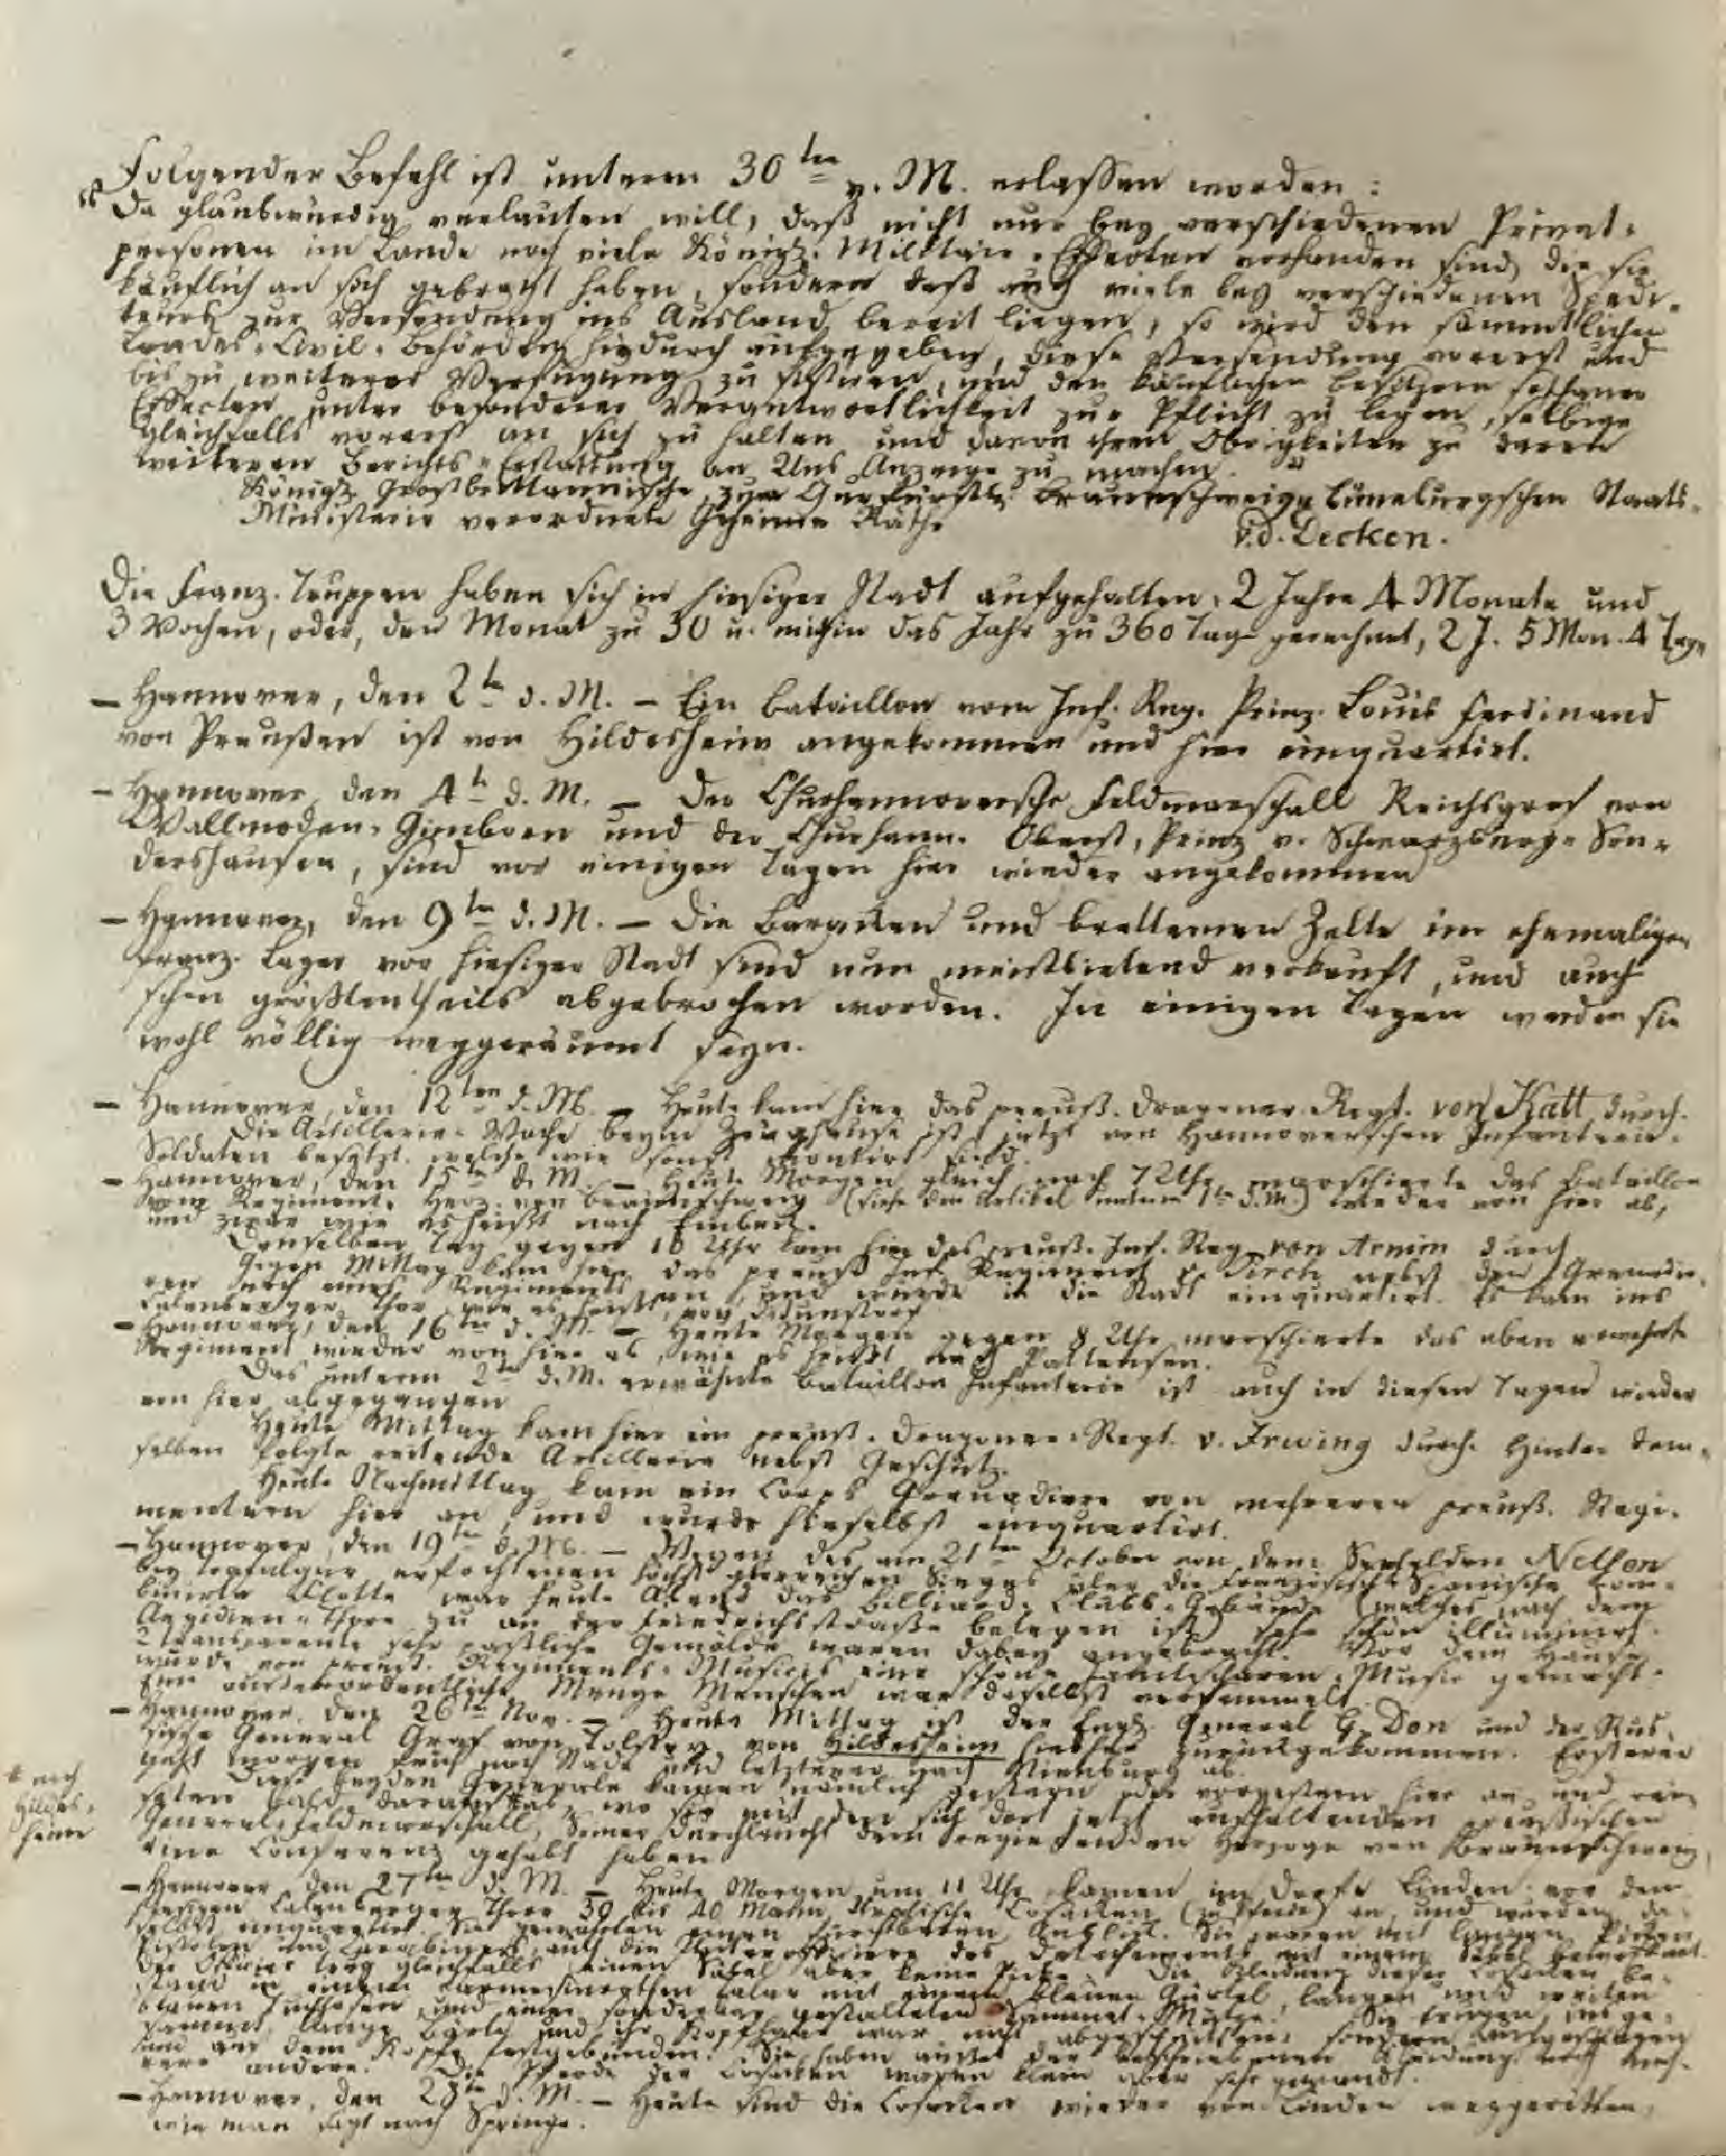 Folgender Befehl ist unterm 30ten v. M. erlassen worden:
"Da glaubwürdig verlauten will, daß nicht nur bey verschiedenen Privat-
personen im Lande noch viele Königl. Militair-Effecten vorhanden sind, die sie
käuflich an sich gebracht haben, sondern daß auch viele bey verschiedenen Spedi-
teurs zur Versendung ins Ausland bereit liegen, so wird den sämmtlichen
Landes-Civil-Behörden hiedurch aufgegeben, diese Versendung vorerst und
bis zu weiterer Verfügung zu sistiren, und den käuflichen Besitzern sothaner
Effecten unter besonderer Verantwortlichkeit zur Pflicht zu legen, selbige
gleichfalls vorerst an sich zu halten und davon ihren Obrigkeiten zu deren
weiteren Berichts-Erstattung an Uns Anzeige zu machen."
Königl. Großbrittannische, zum Churfürstl. Braunschweig-Lüneburgschen Staats-
Ministerio verordnete Geheime Räthe
v. d. Decken.
Die Franz. Truppen haben sich in hiesiger Stadt aufgehalten: 2 Jahre 4 Monate und
3 Wochen, oder, den Monat zu 30 u. mithin das Jahr zu 360 Tage gerechnet, 2 J. 5 Mon. 4 Tage
– Hannover, den 2ten d. M. – Ein Bataillon vom Inf. Reg. Prinz Louis Ferdinand
von Preußen ist von Hildesheim angekommen und hier einquartirt.
– Hannover, den 4ten d. M. – Der Churhannoversche Feldmarschall Reichsgraf von
Wallmoden-Gimborn und der Churhann. Oberst, Prinz v. Schwarzburg-Son-
dershausen, sind vor einigen Tagen hier wieder angekommen
– Hannover, den 9ten d. M. – Die Baraken und bretternen Zelte im ehemaligen
Franz. Lager vor hiesiger Stadt sind nun meistbietend verkauft, und auch
schon größtentheils abgebrochen worden. In einigen Tagen werden sie
wohl völlig weggeräumt seyn.
– Hannover, den 12ten d. M. – Heute kam hier das preuß. Dragoner-Regt. von Katt durch.
Die Artillerie-Wache beym Zeughause ist jetzt von Hannoverschen Infanterie-
Soldaten besetzt, welche wie sonst montirt sind.
– Hannover, den 15ten d. M. – Heute Morgen gleich nach 7 Uhr marschierte das Bataillon
vom Regiment Herz. von Braunschweig (siehe den Artikel unterm 1ten d. M.) wieder von hier ab,
und zwar wie es heißt nach Einbeck.
Denselben Tag gegen 10 Uhr kam hier das preuß. Inf. Reg. von Arnim durch
Gegen Mittag kam hier das preuß. Inf. Regiment v. Pirch nebst den Grenadie-
ren noch eines Regiments an, und wurde in die Stadt einquartirt. Es kam ins
Calenberger Thor, wie es heißt, von
– Hannover, den 16ten d. M. – Heute Morgen gegen 8 Uhr marschierte das eben erwähnte
Regiment wieder von hier ab, wie es heißt nach Pattensen.
Das unterm 2ten d. M. erwähnte Bataillon Infanterie ist auch in diesen Tagen wieder
von hier abgegangen
Heute Mittag kam hier ein preuß. Dragoner-Regt. v. Irwing durch. Hinter dem-
selben folgte reitende Artillerie nebst Geschütz.
Heute Nachmittag kam ein Corps Grenadiere von mehreren preuß. Regi-
mentern hier an, und wurde hieselbst einquartirt.
– Hannover, den 19ten d. M. – Wegen des am 21ten October von dem Seehelden Nelson
bey Trafalgar erfochtenen höchst glorreichen Sieges über die Französisch-Spanische com-
binirte Flotte war heute Abend das Billiard-Clubs-Gebäude (welches nach dem
Aegidien-Thore zu an der Friedrichsstraße belegen ist) sehr schön illuminirt.
2 transparente sehr paßliche Gemälde waren dabey angebracht. Vor dem Hause
wurde von preuß. Regiments-Musicis eine schöne Janitscharen-Musik gemacht.
Eine außerordentliche Menge Menschen war daselbst versammelt.
– Hannover, den 26ten Nov. – Heute Mittag ist der Engl. General G. Don und der Rus-
sische General Graf von Tolstoy von Hildesheim hieher zurückgekommen. Ersterer
geht morgen früh nach Stade und letzterer nach Nienburg ab.
Diese beyden Generale kamen nämlich gestern oder vorgestern hier an und rei-
seten bald darauf * ab, wo sie mit dem sich dort jetzt aufhaltenden preußischen
General-Feldmarschall, Seiner Durchlaucht dem regierenden Herzoge von Braunschweig,
eine Conferenz gehabt haben
* nach
Hildes-
heim
– Hannover, den 27ten d. M. – Heute Morgen um 11 Uhr kamen im Dorfe Linden vor dem
hiesigen Calenberger Thore 30 bis 40 Mann Cosacken (zu Pferde) an, und wurden da-
selbst einquartirt. Sie gewährten einen furchtbaren Anblick. Sie waren mit langen Piken,
Pistolen und Carabinern, auch die Unterofficiere des Detachements mit einem Säbel bewaffnet.
Der Officier trug gleichfalls einen Säbel aber keine Picke. Die Kleidung dieser Cosacken be-
stand in einem Talar mit einem blauen Gürtel, langen und weiten
blauen und einer sonderbar gestalteten Sammet-Mütze. Sie trugen, ins ge-
sammt, lange Bärte und ihr Kopfhaar war nicht abgeschnitten, sondern aufgeschlagen
und auf dem Kopfe festgebunden. Sie haben außer der beschriebenen Kleidung noch meh-
rere andere. Die Pferde der Cosacken waren klein aber sehr gewandt.
– Hannover, den 28ten d. M. – Heute sind die Cosacken wieder von Linden weggeritten,
wie man sagt nach Springe.